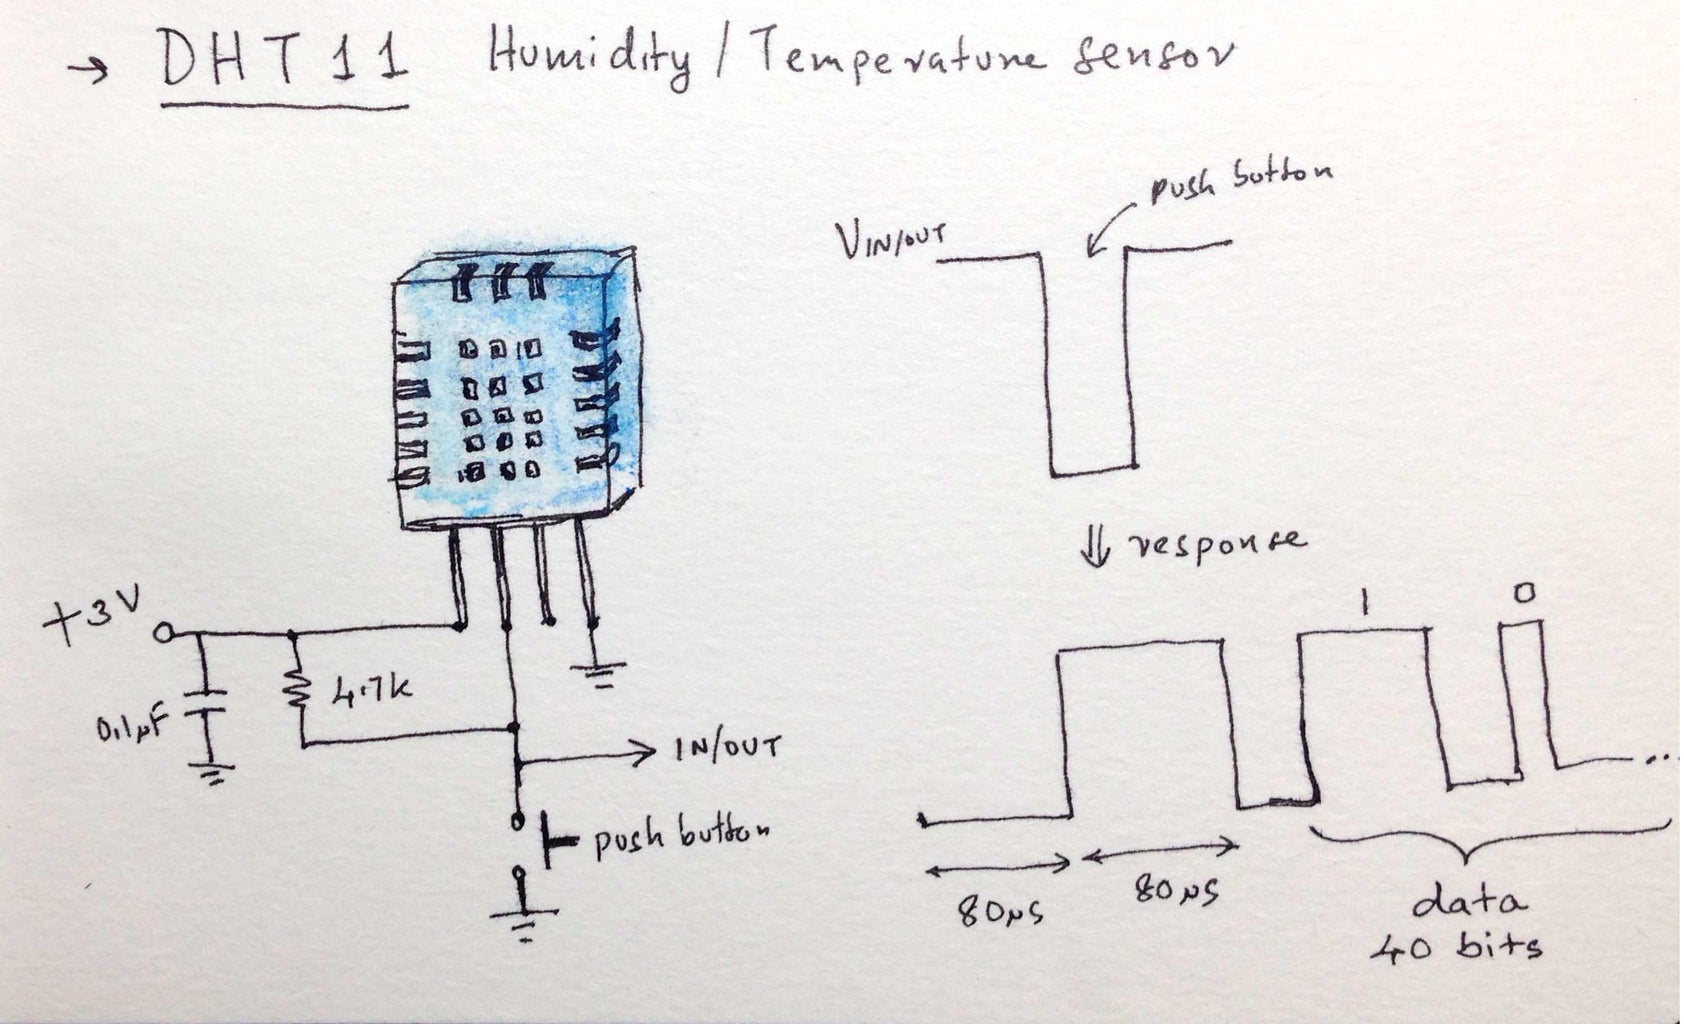 → DHT11 Humidity / Temperature sensor
push button
VIN/OUT
⇓ response
+3V
1
0
4.7k
0.1µF
IN/OUT
push button
...
80µs
80µs
data
40 bits